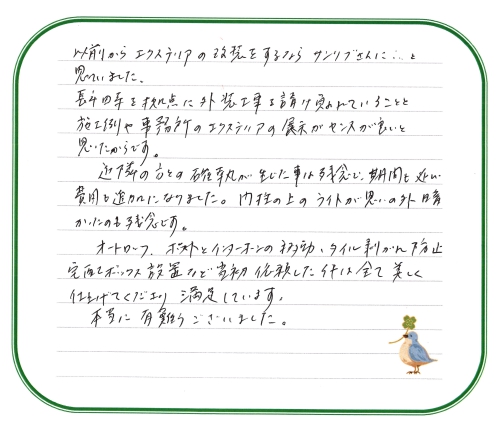 以前から エクステリアの改装をするなら サンリブさんに…と
思っていました。
長年の幸を拠点に外装工事を請け負われていることと
施工例や事務所のエクステリアの展示がセンスが良いと
思いたからです。
近隣の方との確執が生じた事は残念で、期間も延び
費用も追加になりました。門柱の上のライトが思いの外 暗
かったのも残念です。
オートロック、ポストとインターホンの移動、タイル剥がれ防止
宅配ボックス設置など当初依頼した件は全て美しく
仕上げてくださり 満足しています。
本当に 有難うございました。